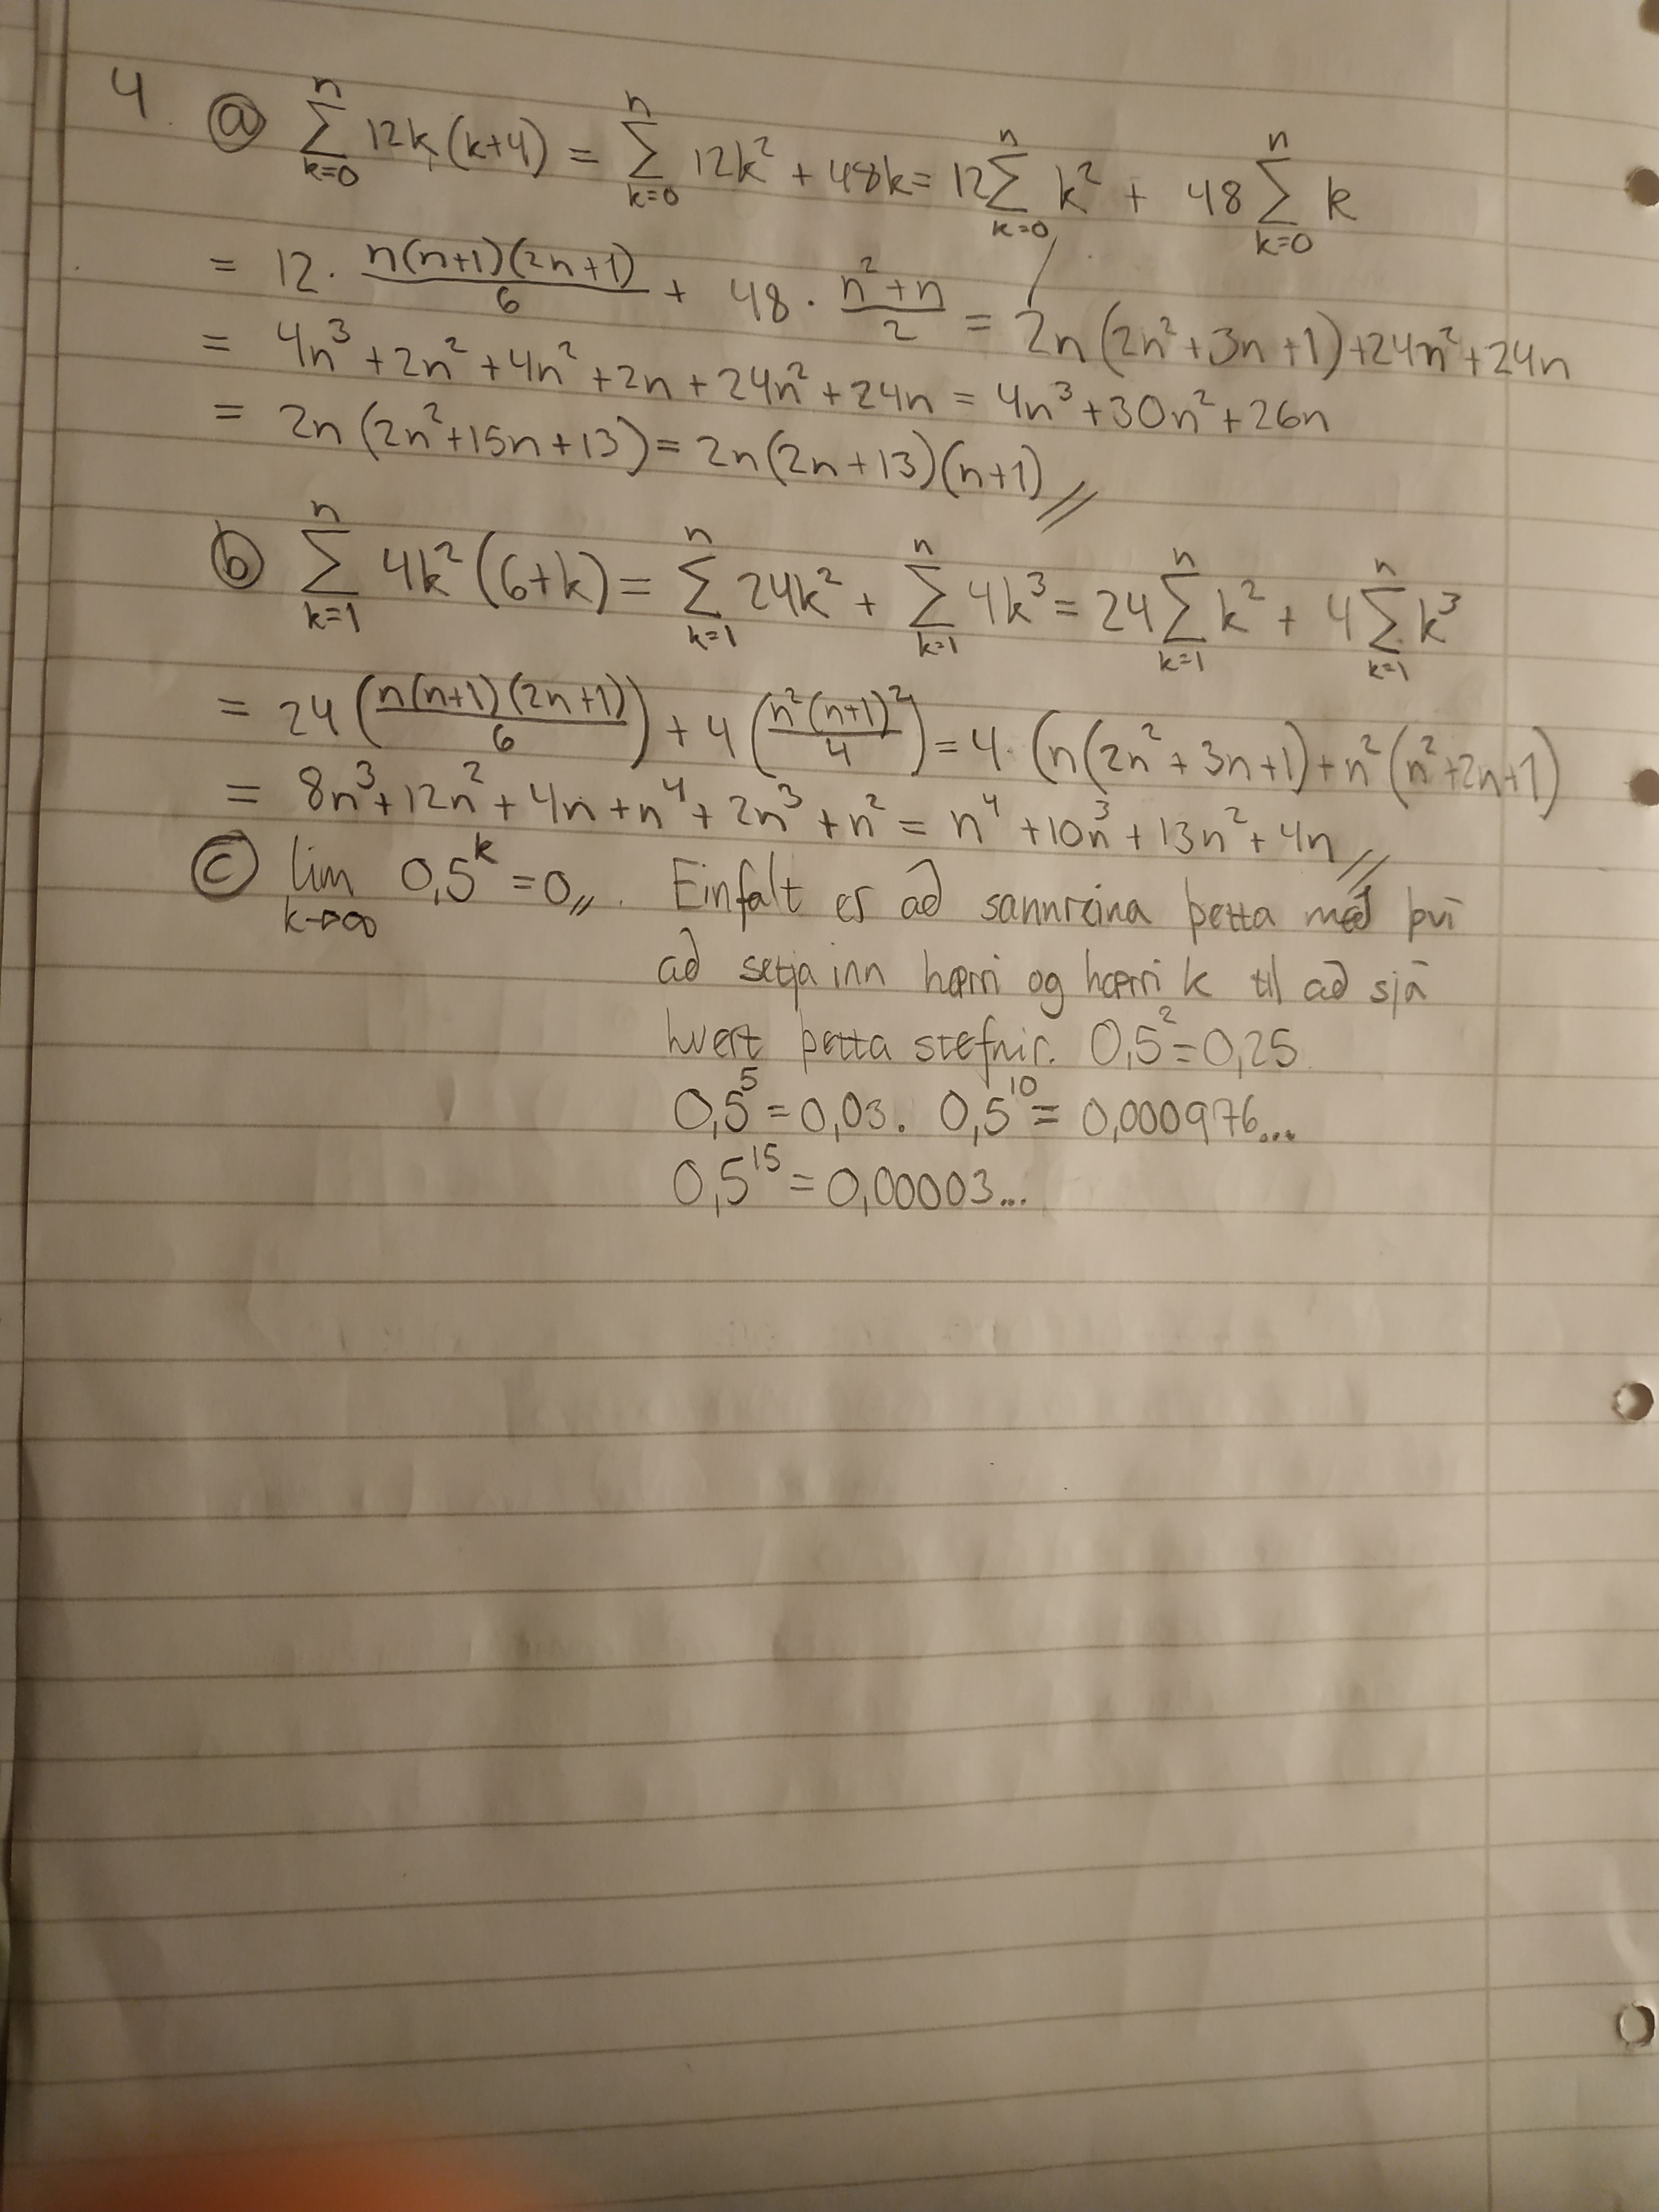 4. ⓐ \sum_{k=0}^{n} 12k(k+4) = \sum_{k=0}^{n} 12k² + 48k = 12 \sum_{k=0}^{n} k² + 48 \sum_{k=0}^{n} k
= 12 · \frac{n(n+1)(2n+1)}{6} + 48 · \frac{n²+n}{2} = 2n(2n²+3n+1)+24n²+24n
= 4n³+2n²+4n²+2n+24n²+24n = 4n³+30n²+26n
= 2n(2n²+15n+13) = 2n(2n+13)(n+1)//
ⓑ \sum_{k=1}^{n} 4k²(6+k) = \sum_{k=1}^{n} 24k² + \sum_{k=1}^{n} 4k³ = 24 \sum_{k=1}^{n} k² + 4 \sum_{k=1}^{n} k³
= 24(\frac{n(n+1)(2n+1)}{6}) + 4(\frac{n²(n+1)²}{4}) = 4·(n(2n²+3n+1)+n²(n²+2n+1)
= 8n³+12n²+4n+n⁴+2n³+n² = n⁴+10n³+13n²+4n//
ⓒ \lim_{k→∞} 0,5^k = 0,,. Einfalt er að sannreina þetta með því
að setja inn hærri og hærri k til að sjá
hvert þetta stefnir. 0,5² = 0,25
0,5⁵ = 0,03. 0,5¹⁰ = 0,000976...
0,5¹⁵ = 0,00003...